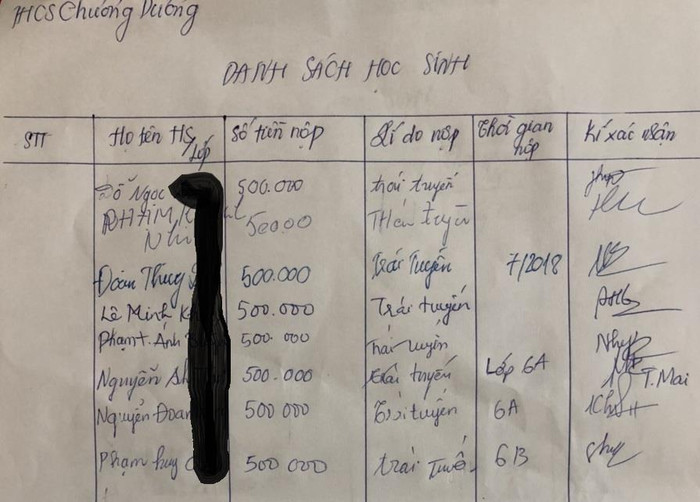 THCS Chương Dương
DANH SÁCH HỌC SINH
STT Họ tên HS/Lớp Số tiền nộp Lí do nộp Thời gian nộp Kí xác nhận
Đỗ Ngọc 500.000 trái tuyến
PHẠM 50000
Như
Đoàn Thuỳ 500.000 Trái Tuyến 7/2018
Lê Minh K 500.000 Trái tuyến
Phạm T. Ánh 500.000 Nhy
Nguyễn 500.000 trái tuyến Lớp 6A T.Mai
Nguyễn Đoan 500 000 6A
Phạm huy 500 000 trái 6B